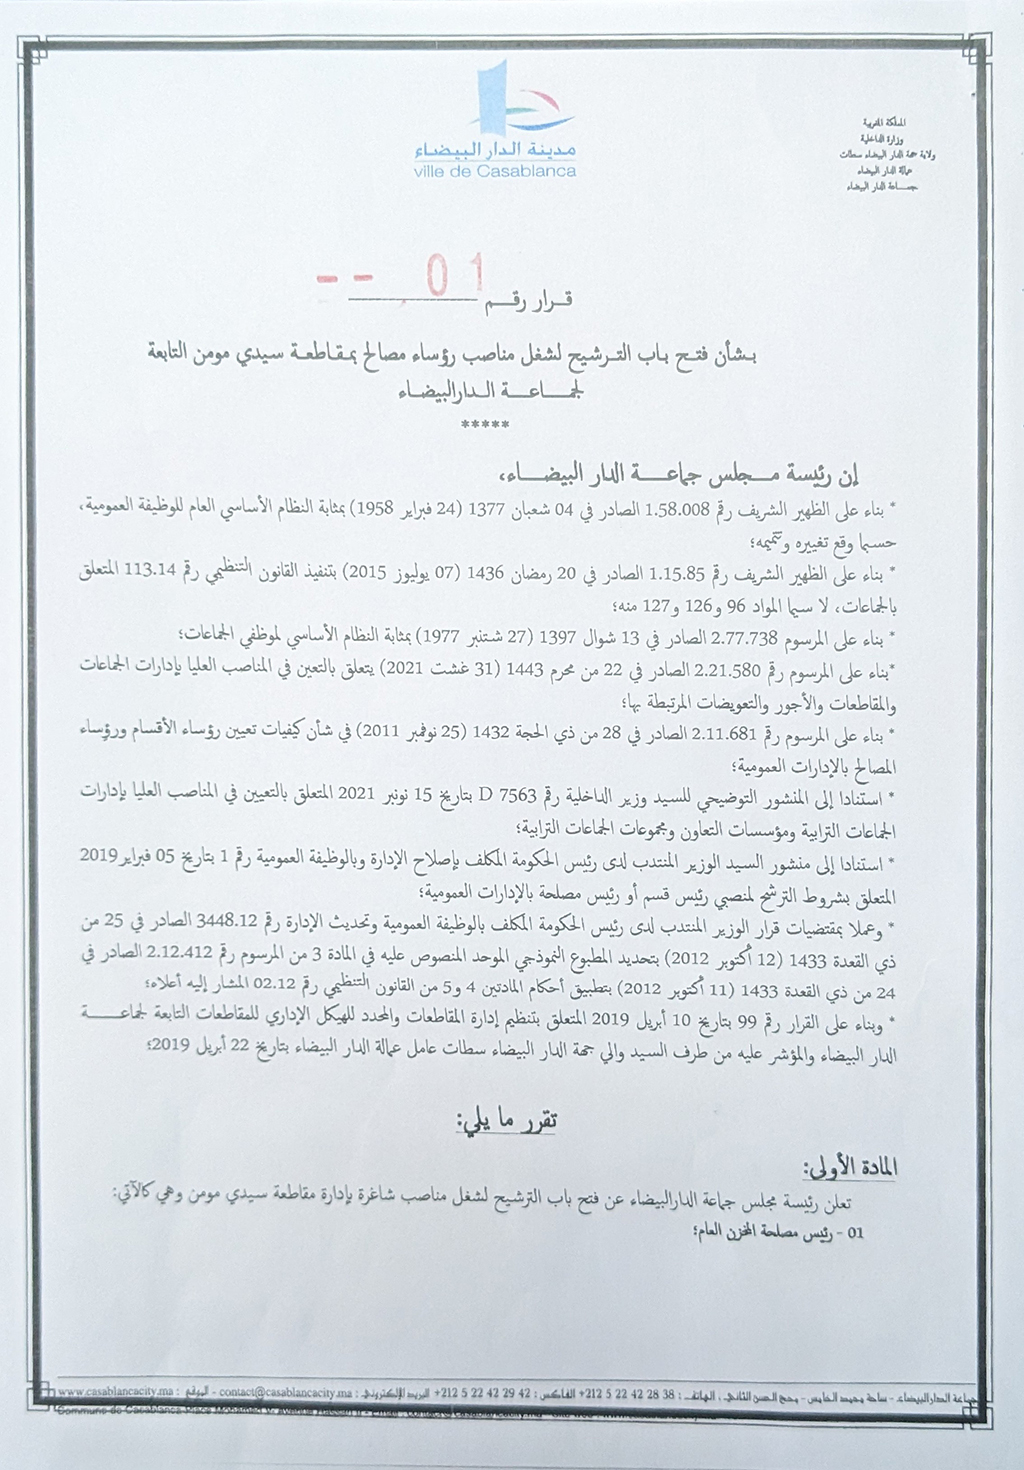 مدينة الدار البيضاء
ville de Casablanca
المملكة المغربية
وزارة الداخلية
ولاية جهة الدار البيضاء سطات
عمالة الدار البيضاء
جمـــاعة الدار البيضاء
-- 01
قـرار رقـم
بـشأن فتـح بـاب التـرشيح لشغل مناصب رؤساء مصالح بمـقاطعـة سيدي مومن التابعة
لجمـــاعـــة الـدارالبيضـاء
*****
إن رئيسة مـجلس جماعـــة الدار البيضـــاء،
* بناء على الظهير الشريف رقم 1.58.008 الصادر في 04 شعبان 1377 (24 فبراير 1958) بمثابة النظام الأساسي العام للوظيفة العمومية،
حسبما وقع تغييره وتتميمه؛
* بناء على الظهير الشريف رقم 1.15.85 الصادر في 20 رمضان 1436 (07 يوليوز 2015) بتنفيذ القانون التنظيمي رقم 113.14 المتعلق
بالجماعات، لا سيما المواد 96 و126 و127 منه؛
* بناء على المرسوم 2.77.738 الصادر في 13 شوال 1397 (27 شتنبر 1977) بمثابة النظام الأساسي لموظفي الجماعات؛
*بناء على المرسوم رقم 2.21.580 الصادر في 22 من محرم 1443 (31 غشت 2021) يتعلق بالتعين في المناصب العليا بإدارات الجماعات
والمقاطعات والأجور والتعويضات المرتبطة بها؛
* بناء على المرسوم رقم 2.11.681 الصادر في 28 من ذي الحجة 1432 (25 نوفمبر 2011) في شأن كيفيات تعيين رؤساء الأقسام ورؤساء
المصالح بالإدارات العمومية؛
* استنادا إلى المنشور التوضيحي للسيد وزير الداخلية رقم D 7563 بتاريخ 15 نونبر 2021 المتعلق بالتعيين في المناصب العليا بإدارات
الجماعات الترابية ومؤسسات التعاون ومجموعات الجماعات الترابية؛
* استنادا إلى منشور السيد الوزير المنتدب لدى رئيس الحكومة المكلف بإصلاح الإدارة وبالوظيفة العمومية رقم 1 بتاريخ 05 فبراير 2019
المتعلق بشروط الترشح لمنصبي رئيس قسم أو رئيس مصلحة بالإدارات العمومية؛
* وعملا بمقتضيات قرار الوزير المنتدب لدى رئيس الحكومة المكلف بالوظيفة العمومية وتحديث الإدارة رقم 3448.12 الصادر في 25 من
ذي القعدة 1433 (12 أكتوبر 2012) بتحديد المطبوع النموذجي الموحد المنصوص عليه في المادة 3 من المرسوم رقم 2.12.412 الصادر في
24 من ذي القعدة 1433 (11 أكتوبر 2012) بتطبيق أحكام المادتين 4 و5 من القانون التنظيمي رقم 02.12 المشار إليه أعلاه؛
* وبناء على القرار رقم 99 بتاريخ 10 أبريل 2019 المتعلق بتنظيم إدارة المقاطعات والمحدد للهيكل الإداري للمقاطعات التابعة لجماعـــــة
الدار البيضاء والمؤشر عليه من طرف السيد والي جهة الدار البيضاء سطات عامل عمالة الدار البيضاء بتاريخ 22 أبريل 2019؛
تقرر ما يلي:
المادة الأولى:
تعلن رئيسة مجلس جماعة الدارالبيضاء عن فتح باب الترشيح لشغل مناصب شاغرة بإدارة مقاطعة سيدي مومن وهي كالآتي:
01 - رئيس مصلحة المخزن العام؛
جماعة الدارالبيضاء - ساحة محمد الخامس - محج الحسن الثاني . الهاتف : 38 28 42 22 5 212+ الفاكس : 42 29 42 22 5 212+ البريد الإلكتروني : contact@casablancacity.ma - الموقع : www.casablancacity.ma